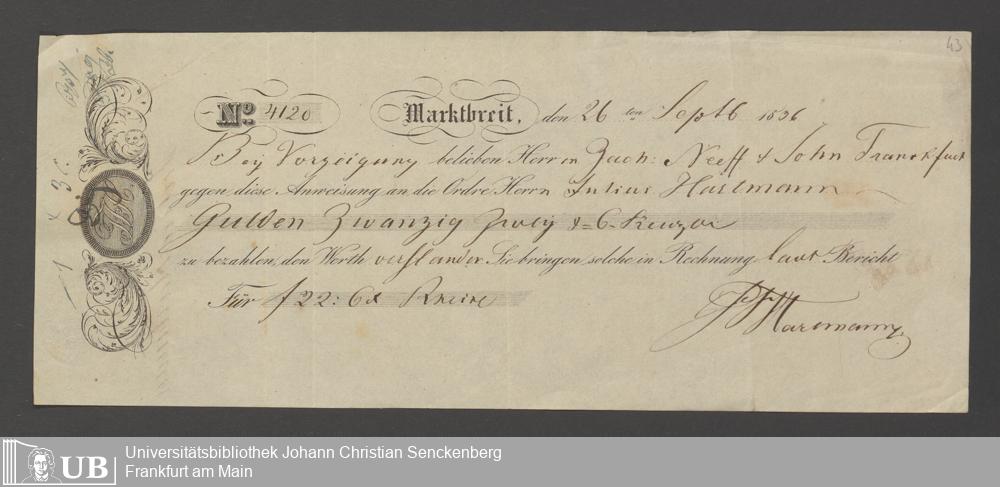 43
No. 4120 Marktbreit, den 26 ten Septb 1836
Bey Vorzeigung belieben Herren Zach: Neeff & Sohn Franckfurt
gegen diese Anweisung an die Ordre Herrn Julius Hartmann
Gulden Zwanzig Zwey & 6 Kreuzer
zu bezahlen, den Werth verstanden Sie bringen solche in Rechnung laut Bericht
Für f 22: 6 x Rheins
Hartmann
UB
Universitätsbibliothek Johann Christian Senckenberg
Frankfurt am Main